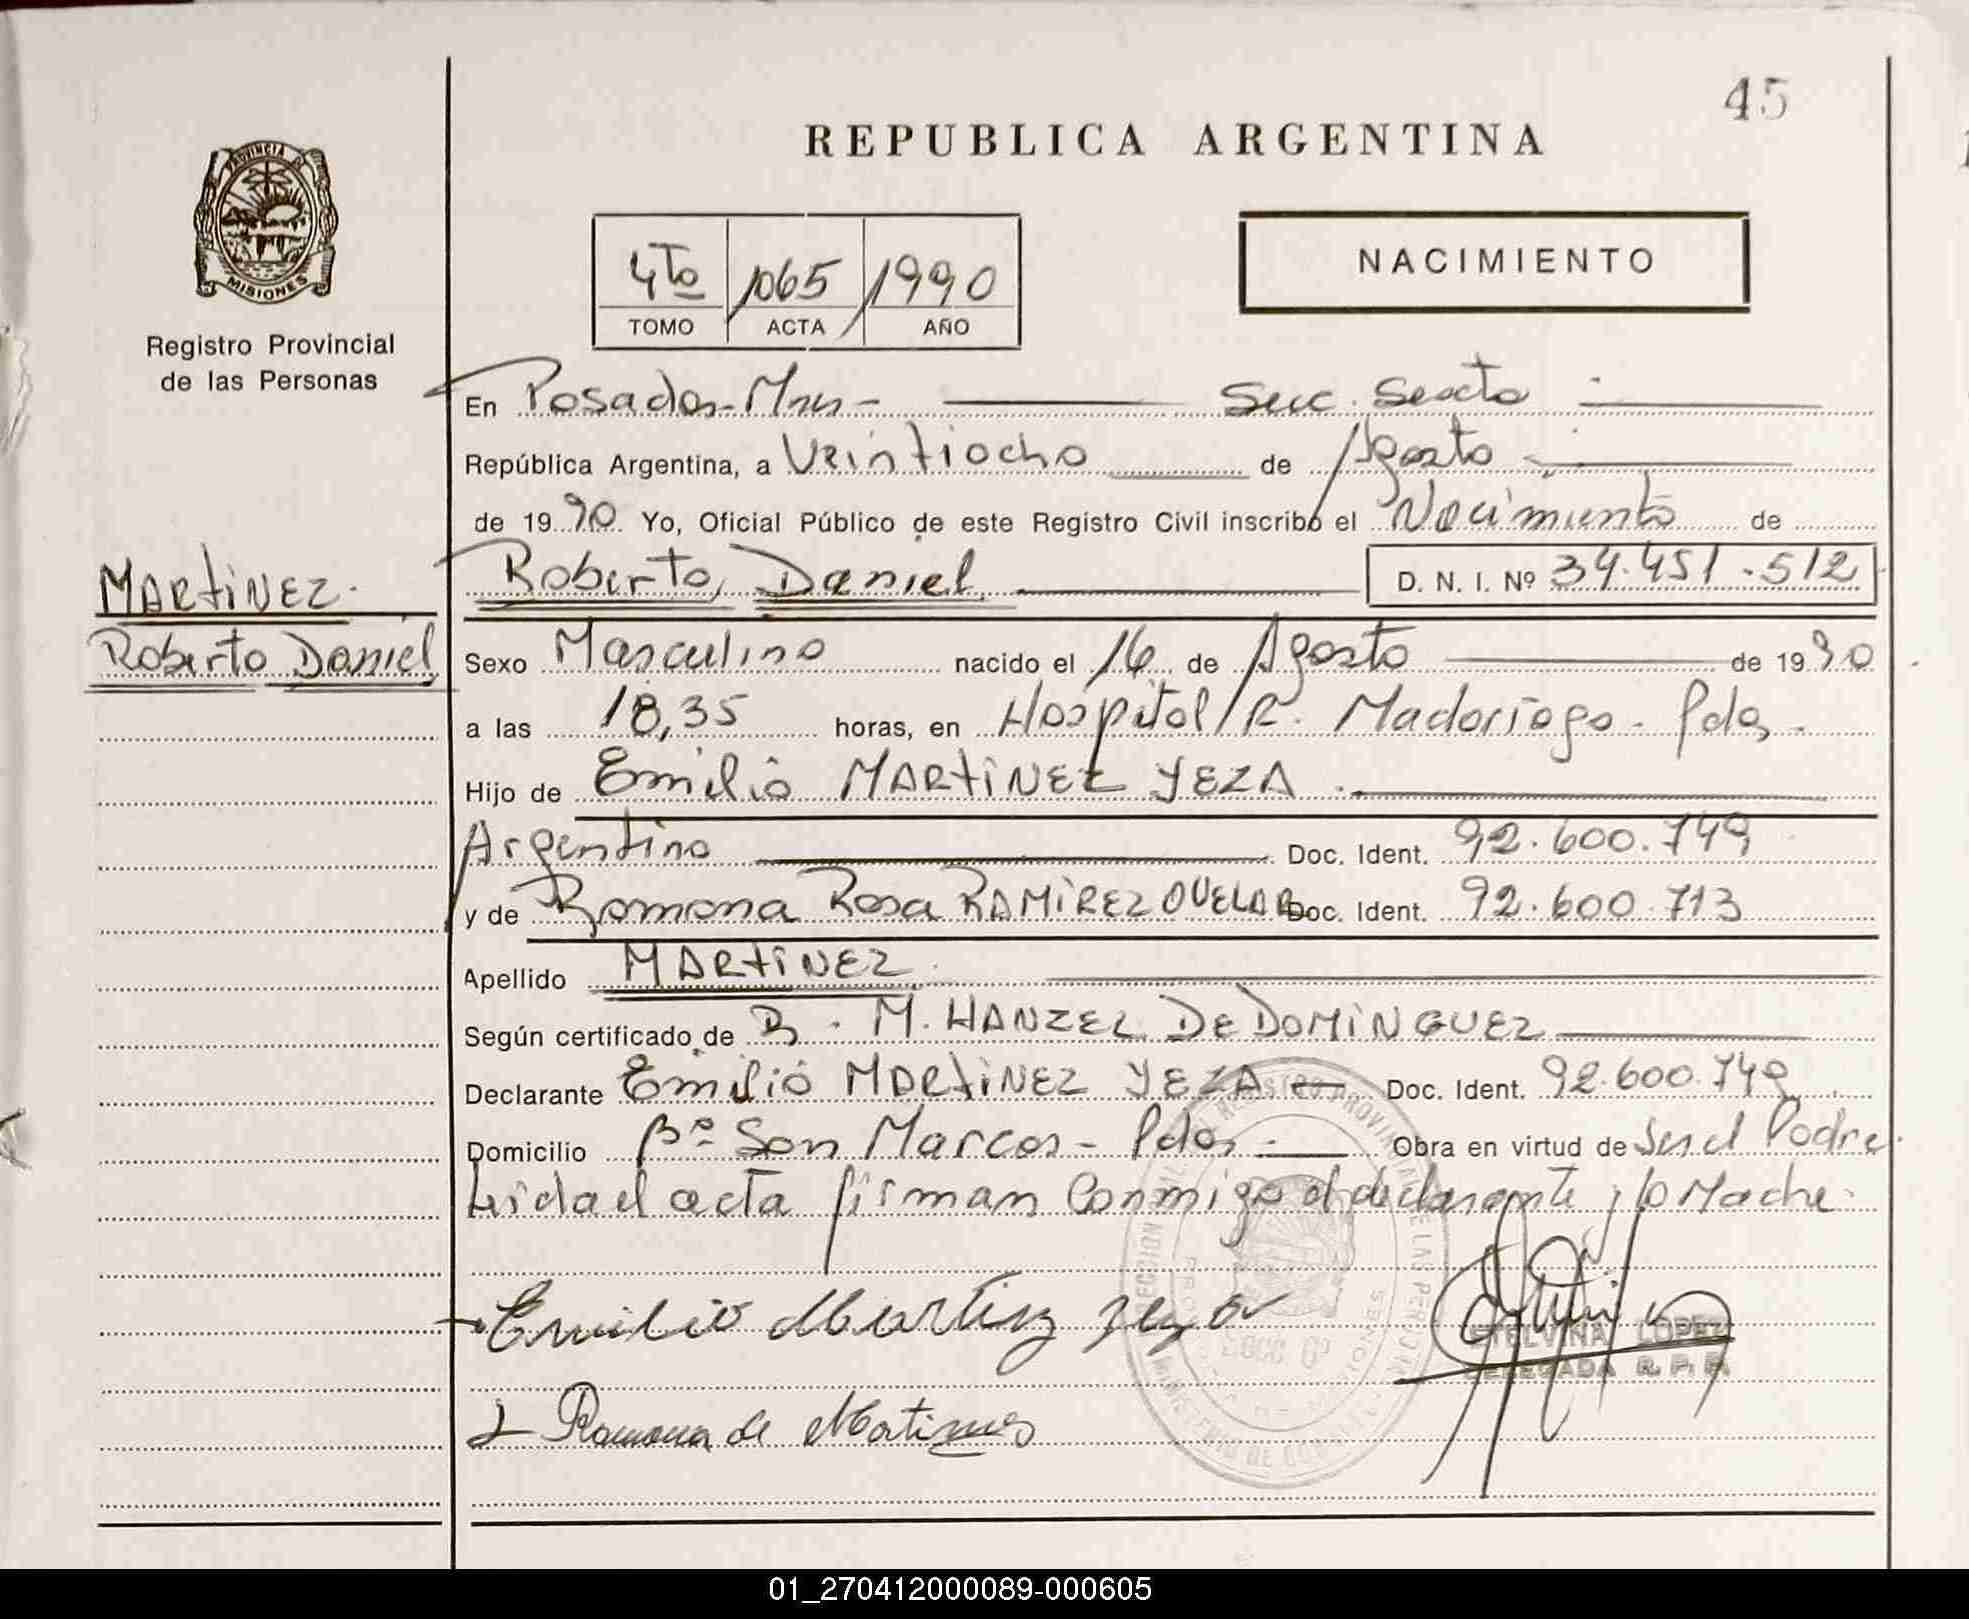 45
REPUBLICA ARGENTINA
PROVINCIA DE
MISIONES
Registro Provincial
de las Personas
4to 1065 1990
TOMO ACTA AÑO
NACIMIENTO
En Posadas - Mnes - Secc. Sexta
República Argentina, a Veintiocho de Agosto
de 19 90 Yo, Oficial Público de este Registro Civil inscribo el Nacimiento de
MARTINEZ.
Roberto Daniel
Roberto, Daniel D. N. I. Nº 34.451.512
Sexo Masculino nacido el 16 de Agosto de 19 90
a las 18,35 horas, en Hospital R. Madariaga - Pdas -
Hijo de Emilio MARTINEZ YEZA
Argentino Doc. Ident. 92.600.749
y de Ramona Rosa RAMIREZ OVELAR Doc. Ident. 92.600.713
Apellido MARTINEZ
Según certificado de B. M. HANZEL DE DOMINGUEZ
Declarante Emilio MARTINEZ YEZA Doc. Ident. 92.600.749
Domicilio Bº San Marcos - Pdas - Obra en virtud de Ser el Padre
Leida el acta firman conmigo el declarante y la Madre
Emilio Martinez Yeza
ETELVINA LOPEZ
DELEGADA R. P. P.
Ramona de Martinez
01_270412000089-000605